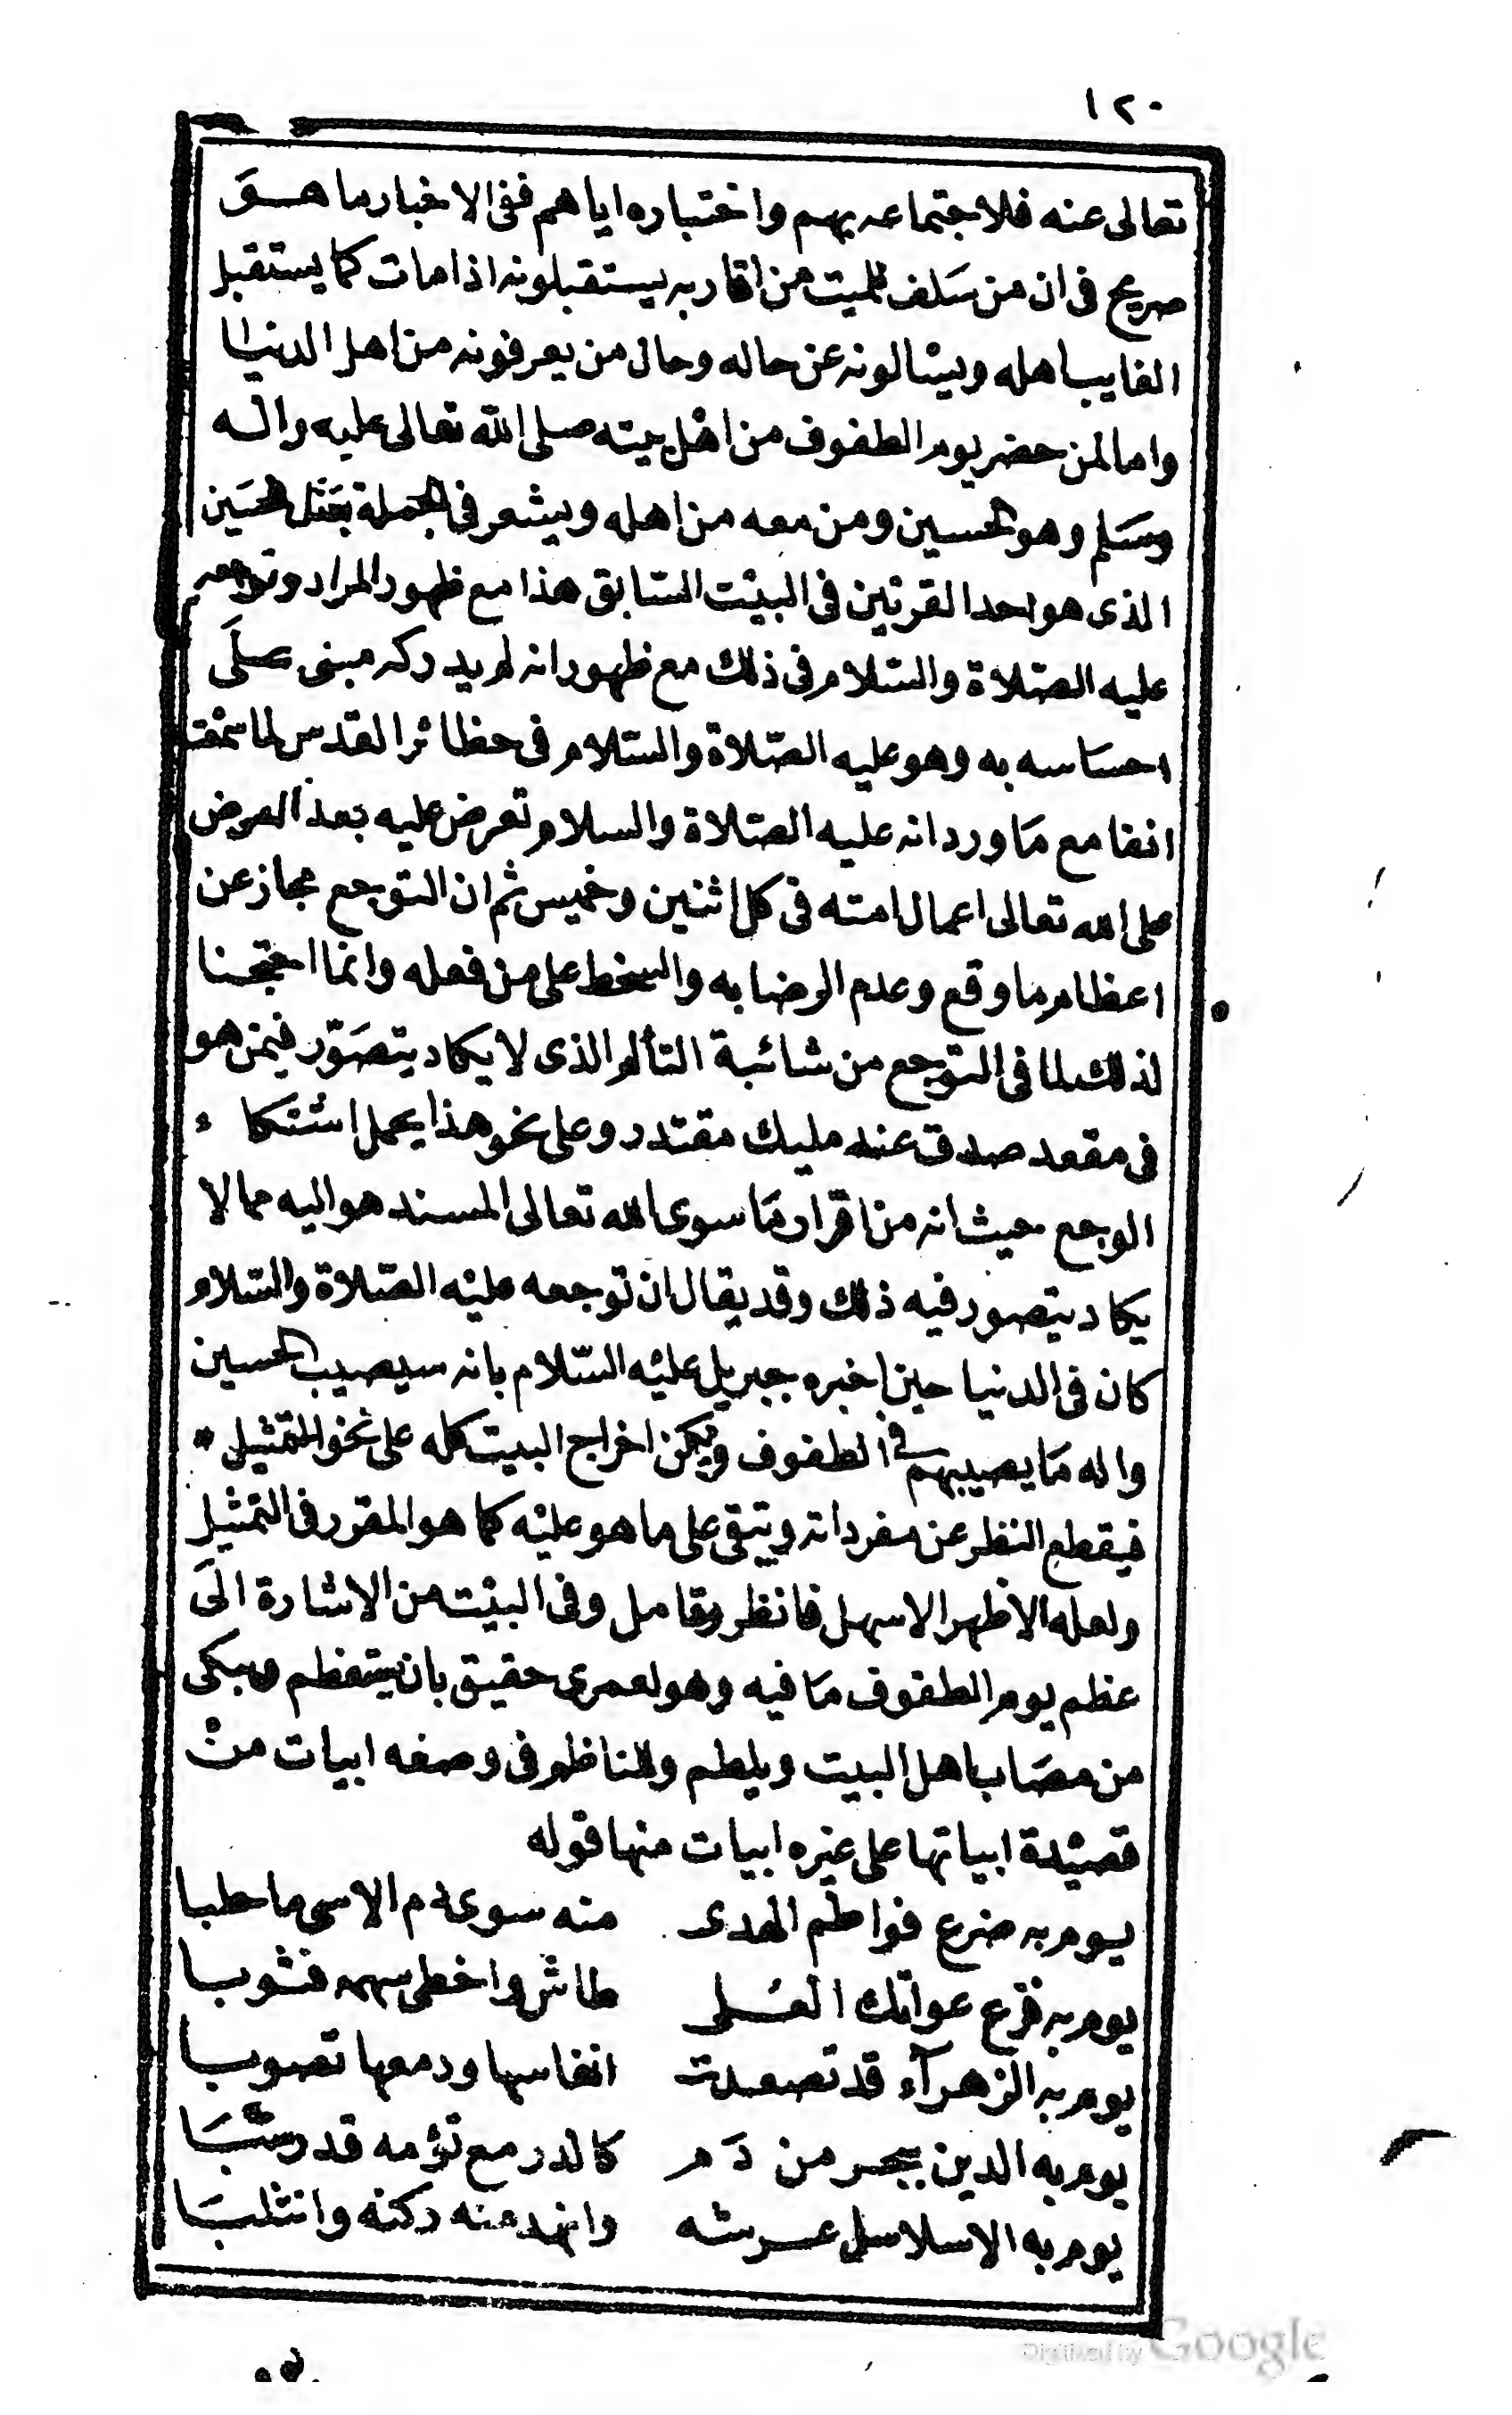 ١٢٠
تعالى عنه فلاجتماعه بهم واختباره اياهم ففى الاخبار ما هو
صريح فى ان من سَلف للميت من اقاربه يستقبلونه اذا مات كما يستقبل
الغايب اهله ويسئالونه عن حاله وحال من يعرفونه من اهل الدنيا
واما لمن حضر يوم الطفوف من اهل بيته صلى الله تعالى عليه واله
وسَلم وهو الحسين ومن معه من اهله ويشعر فى الجملة بقتل الحسَين
الذى هو احد القرنين فى البيت السّابق هذا مع ظهور المراد وتوجعه
عليه الصّلاة والسّلام فى ذلك مع ظهور انه لم يدركه مبنى علَى
احسَاسه به وهو عليه الصّلاة والسّلام فى حظائر القدس لما سمعْت
انفا مع مَا ورد انه عليه الصّلاة والسلام تعرض عليه بعد العرض
على الله تعالى اعمال امته فى كل اثنين وخميس ثم ان التوجع مجاز عن
اعظام ما وقع وعدم الرضا به والسخط على من فعله وانما احتجنا
لذلك لما فى التوجع من شائبة التألم الذى لا يكاد يتصَوّر فيمن هو
فى مقعد صدق عند مليك مقتدر وعلى نحو هذا يحمل اشتكاء
الوجع حيث انه من اقرار مَا سوى الله تعالى المسند هو اليه مما لا
يكاد يتصور فيه ذلك وقد يقال ان توجعه عليْه الصّلاة والسّلام
كان فى الدنيا حين اخبره جبريل عليْه السّلام بانه سيصيب الحسين
واله مَا يصيبهم فى الطفوف ويمكن اخراج البيت كله على نحو التمثيل *
فيقطع النظر عن مفرداته ويبقى على ما هو عليْه كما هو المقرر فى التمثيل
ولعله الاظهر الاسهل فانظر وتامل وفى البيْت من الاشارة الَى
عظم يوم الطفوف مَا فيه وهو لعمرى حقيق بان يستعظم ويبكى
من مصَاب اهل البيت ويلطم وللناظم فى وصفه ابيات منْ
قصيْدة ابياتها على غيره ابيات منها قوله
يوم به ضرع فواطم الهدى منه سوى دم الاسى ما حلبا
يوم به فرع عواتك العُلى طاش واخطى سهمه فنشوبا
يوم به الزهرآء قد تصعدت انفاسها ودمعها تصوبا
يوم به الدين ببحر من دَم كالدر مع تؤمه قد رسَبَا
يوم به الاسلام سل عرشه وانهد منه ركنه وانثلبَا
Digitized by Google